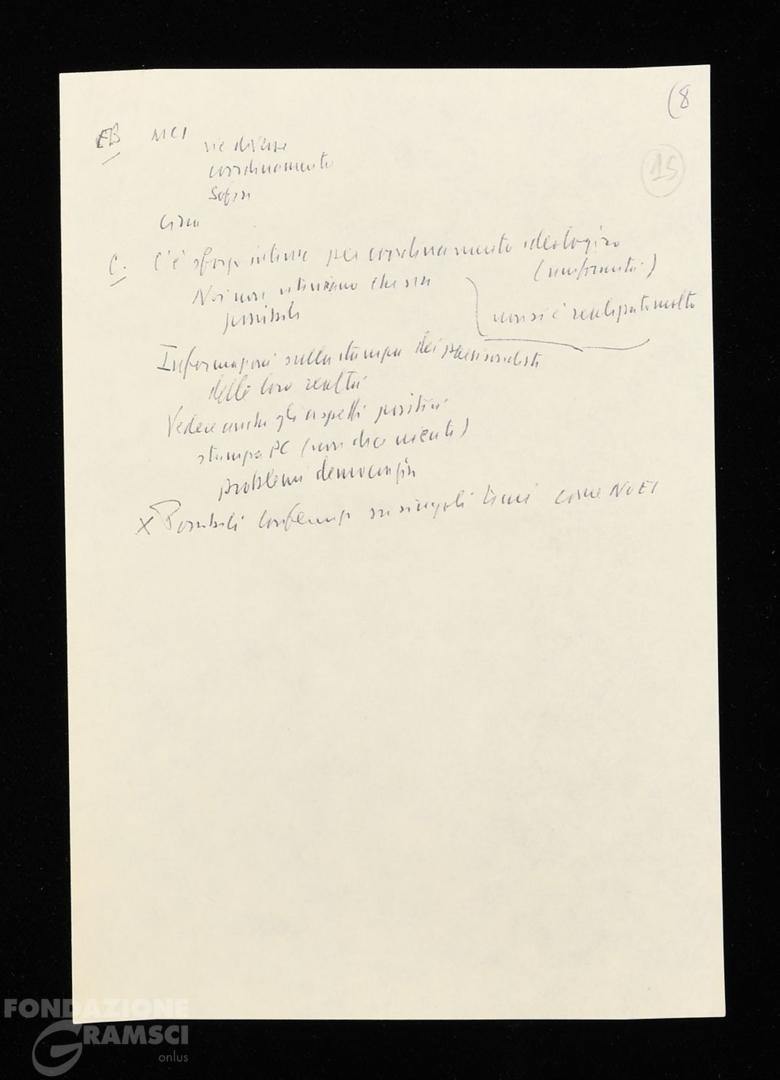 (8
15
EB MCI
vie diverse
coordinamento
Sofia
Cina
C. C'è sforzo intenso per coordinamento ideologico
(uniformità)
Noi non riteniamo che sia
possibile
non si è realizzato molto
Informazioni sulla stampa dei paesi socialisti
delle loro realtà
Vedere anche gli aspetti positivi
stampa PC (non dice niente)
problemi democrazia
X Possibili conferenze su singoli temi come NOEI
FONDAZIONE
GRAMSCI
onlus